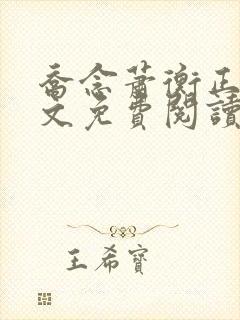 喬念蕭衡正
文免費閱讀
王希寶